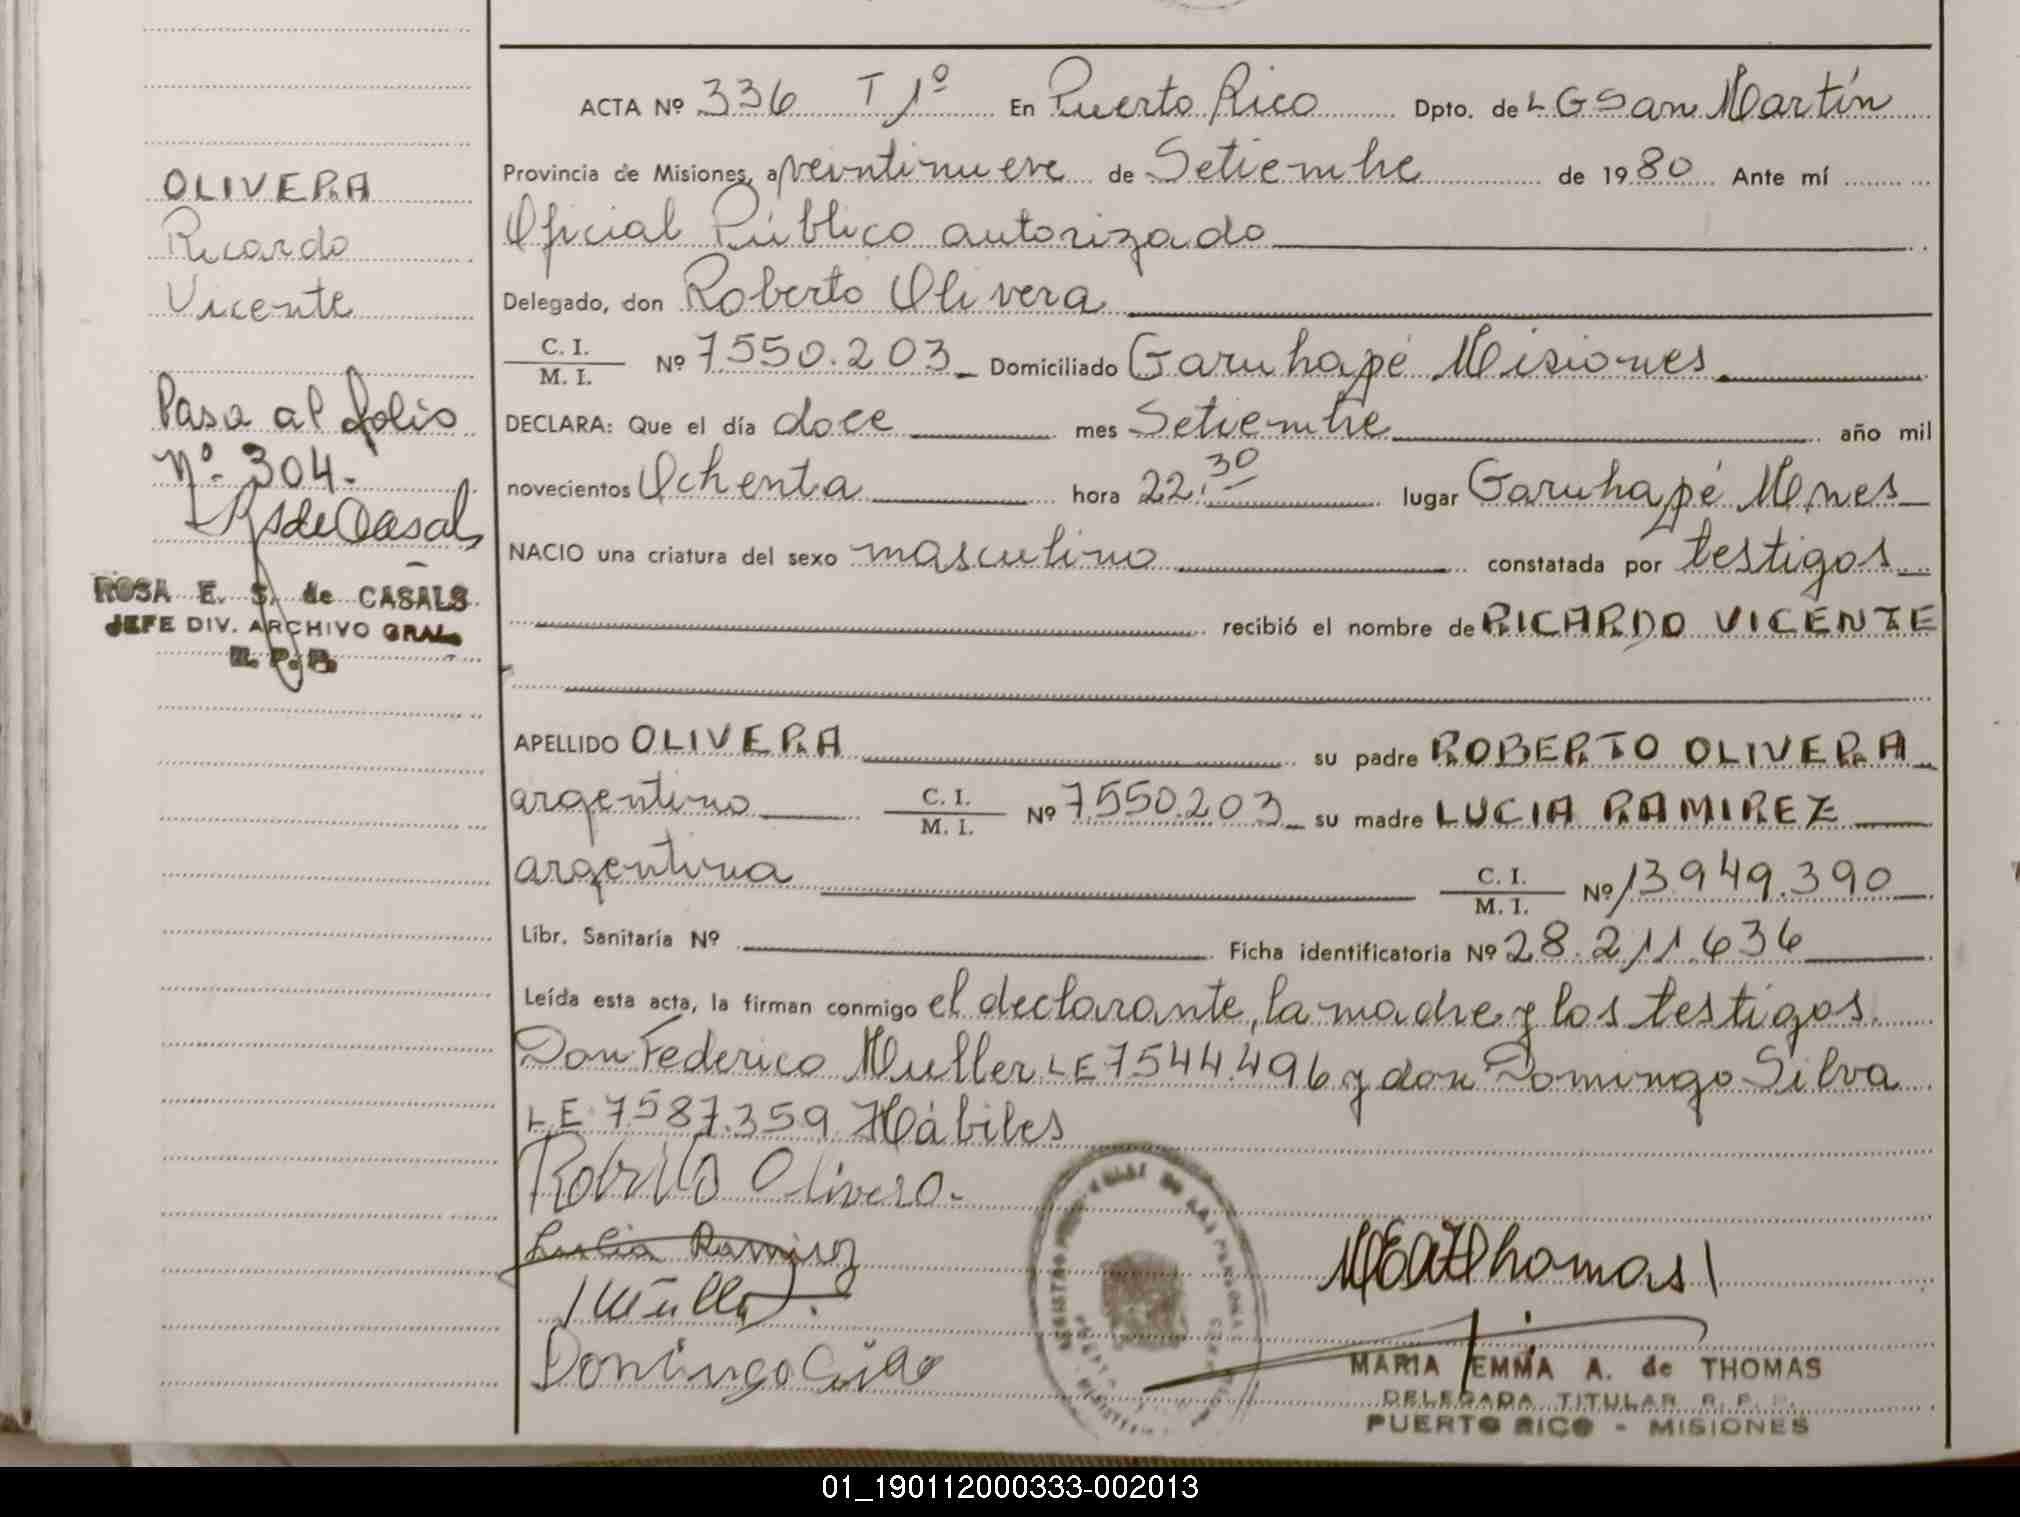 OLIVERA
Ricardo
Vicente
Pasa al folio
Nº 304.-
RSdeCasals
ROSA E. S. de CASALS
JEFE DIV. ARCHIVO GRAL.
R. P. P.
ACTA Nº 336 T 1º En Puerto Rico Dpto. de L G San Martín
Provincia de Misiones, a veintinueve de Setiembre de 1980 Ante mí
Oficial Público autorizado
Delegado, don Roberto Olivera
C. I. / M. I. Nº 7.550.203 Domiciliado Garuhapé Misiones
DECLARA: Que el día doce mes Setiembre año mil
novecientos Ochenta hora 22.30 lugar Garuhapé Mnes
NACIO una criatura del sexo masculino constatada por testigos
recibió el nombre de RICARDO VICENTE
APELLIDO OLIVERA su padre ROBERTO OLIVERA
argentino C. I. / M. I. Nº 7.550.203 su madre LUCIA RAMIREZ
argentina C. I. / M. I. Nº 13.949.390
Libr. Sanitaria Nº Ficha identificatoria Nº 28.211.636
Leída esta acta, la firman conmigo el declarante, la madre y los testigos.
Don Federico Muller LE 7.544.496 y don Domingo Silva
LE 7.587.359 Hábiles
Roberto Olivera.
Lucia Ramirez
Müller
Domingo Silva
MEAThomas
MARIA EMMA A. de THOMAS
DELEGADA TITULAR R. P. P.
PUERTO RICO - MISIONES
REGISTRO DE LAS PERSONAS
01_190112000333-002013